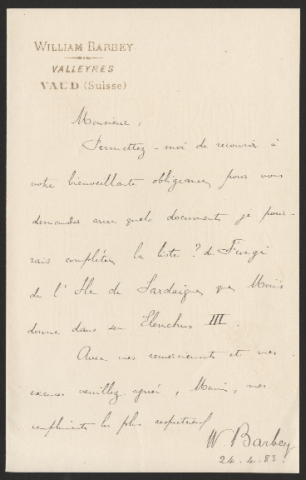 WILLIAM BARBEY
VALLEYRES
VAUD (Suisse)
Monsieur,
Permettez-moi de recourir à
votre bienveillante obligeance pour vous
demander avec quels documents je pour-
rais compléter la liste ? de Fungi
de l'Ile de Sardaigne que Moris
donne dans son Elenchus III.
Avec mes remerciements et mes
excuses veuillez agréer, Monsieur, mes
compliments les plus respectueux
W. Barbey
24.4.83.